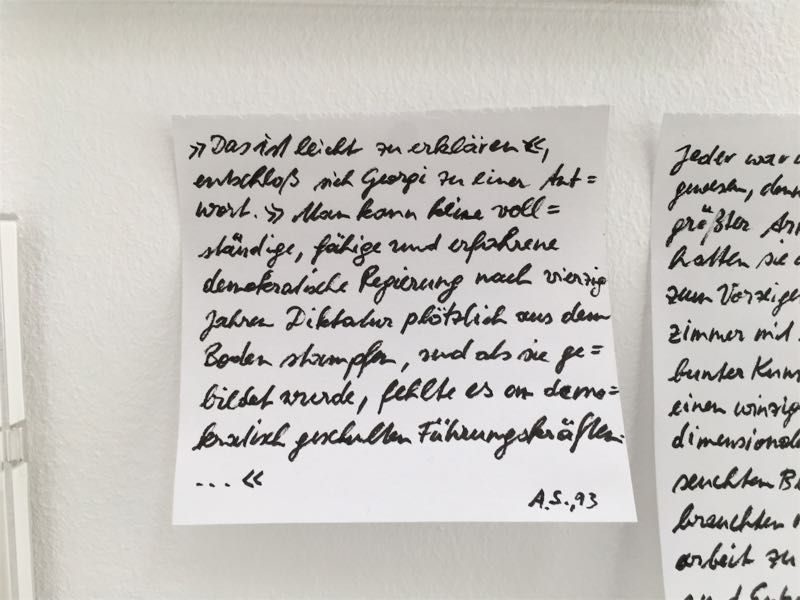 »Das ist leicht zu erklären«,
entschloß sich Georgi zu einer Ant=
wort. »Man kann keine voll=
ständige, fähige und erfahrene
demokratische Regierung nach vierzig
Jahren Diktatur plötzlich aus dem
Boden stampfen, und als sie ge=
bildet wurde, fehlte es an demo=
kratisch geschulten Führungskräften.
... «
A.S., 93
Jeder war
gewesen, denn
größter
hatten sie
zum
zimmer mit
bunter
einen
seuchten
brauchten
arbeit zu
und